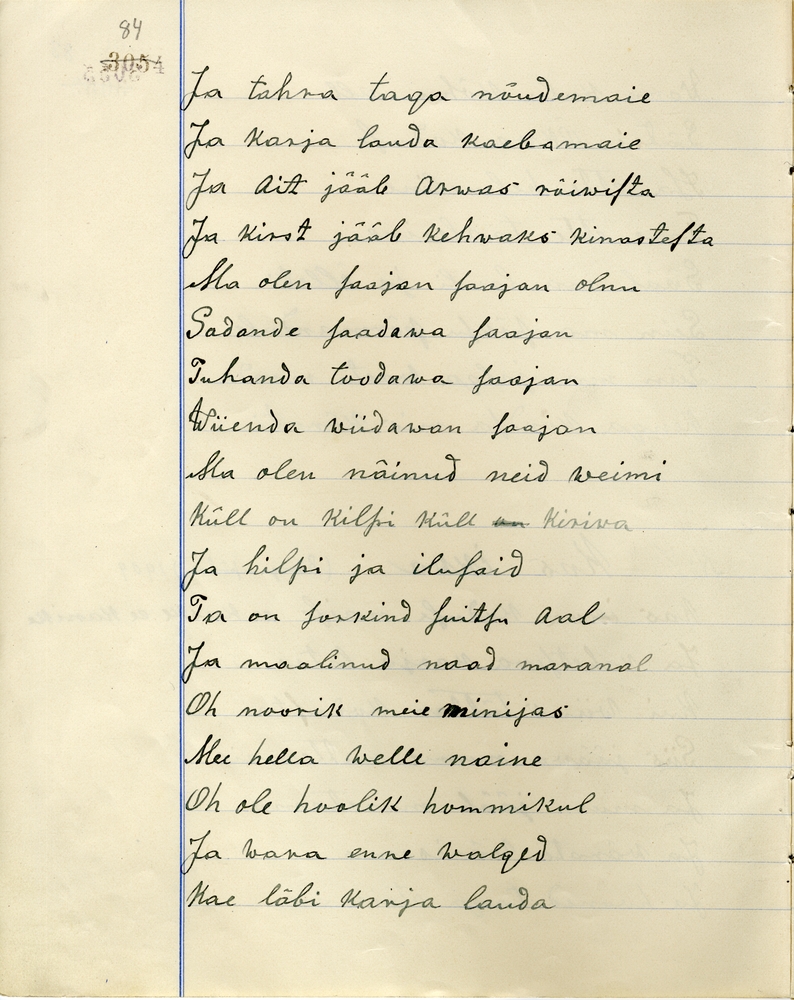 84
3054
Ja tahra taga nõudemaie
Ja karja lauda kaebamaie
Ja Ait jääb Arwas rõiwista
Ja kirst jääb kehwaks kinastesta
Ma olen saajan saajan olnu
Sadande saadawa saajan
Tuhanda toodawa saajan
Wiienda wiidawan saajan
Ma olen näinud neid weimi
Küll on kilpi küll on kiriwa
Ja hilpi ja ilusaid
Ta on sorkind suitsu aal
Ja maalinud naad maranal
Oh noorik meie minijas
Mee hella welle naine
Oh ole hoolik hommikul
Ja wara enne walged
Kae läbi karja lauda